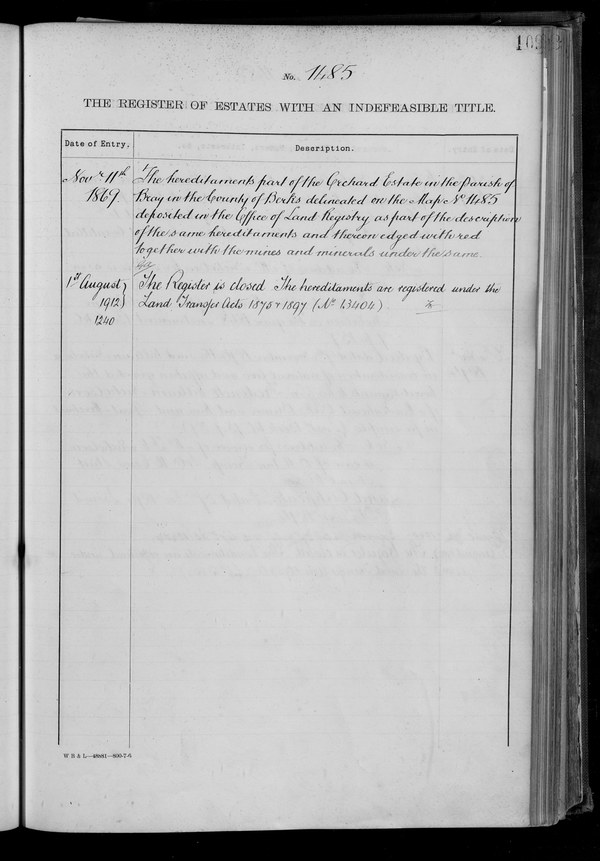 109
No. 1485
THE REGISTER OF ESTATES WITH AN INDEFEASIBLE TITLE.
Date of Entry.
Description.
Novr. 11th
1869
The hereditaments part of the Orchard Estate in the Parish of
Bray in the County of Berks delineated on the Map No 1485
deposited in the Office of Land Registry as part of the description
of the same hereditaments and thereon edged with red
together with the mines and minerals under the same.
1st August
1912
1240
The Register is closed The hereditaments are registered under the
Land Transfer Acts 1875 & 1897 (No 13404)
W B & L—48881—800-7-6